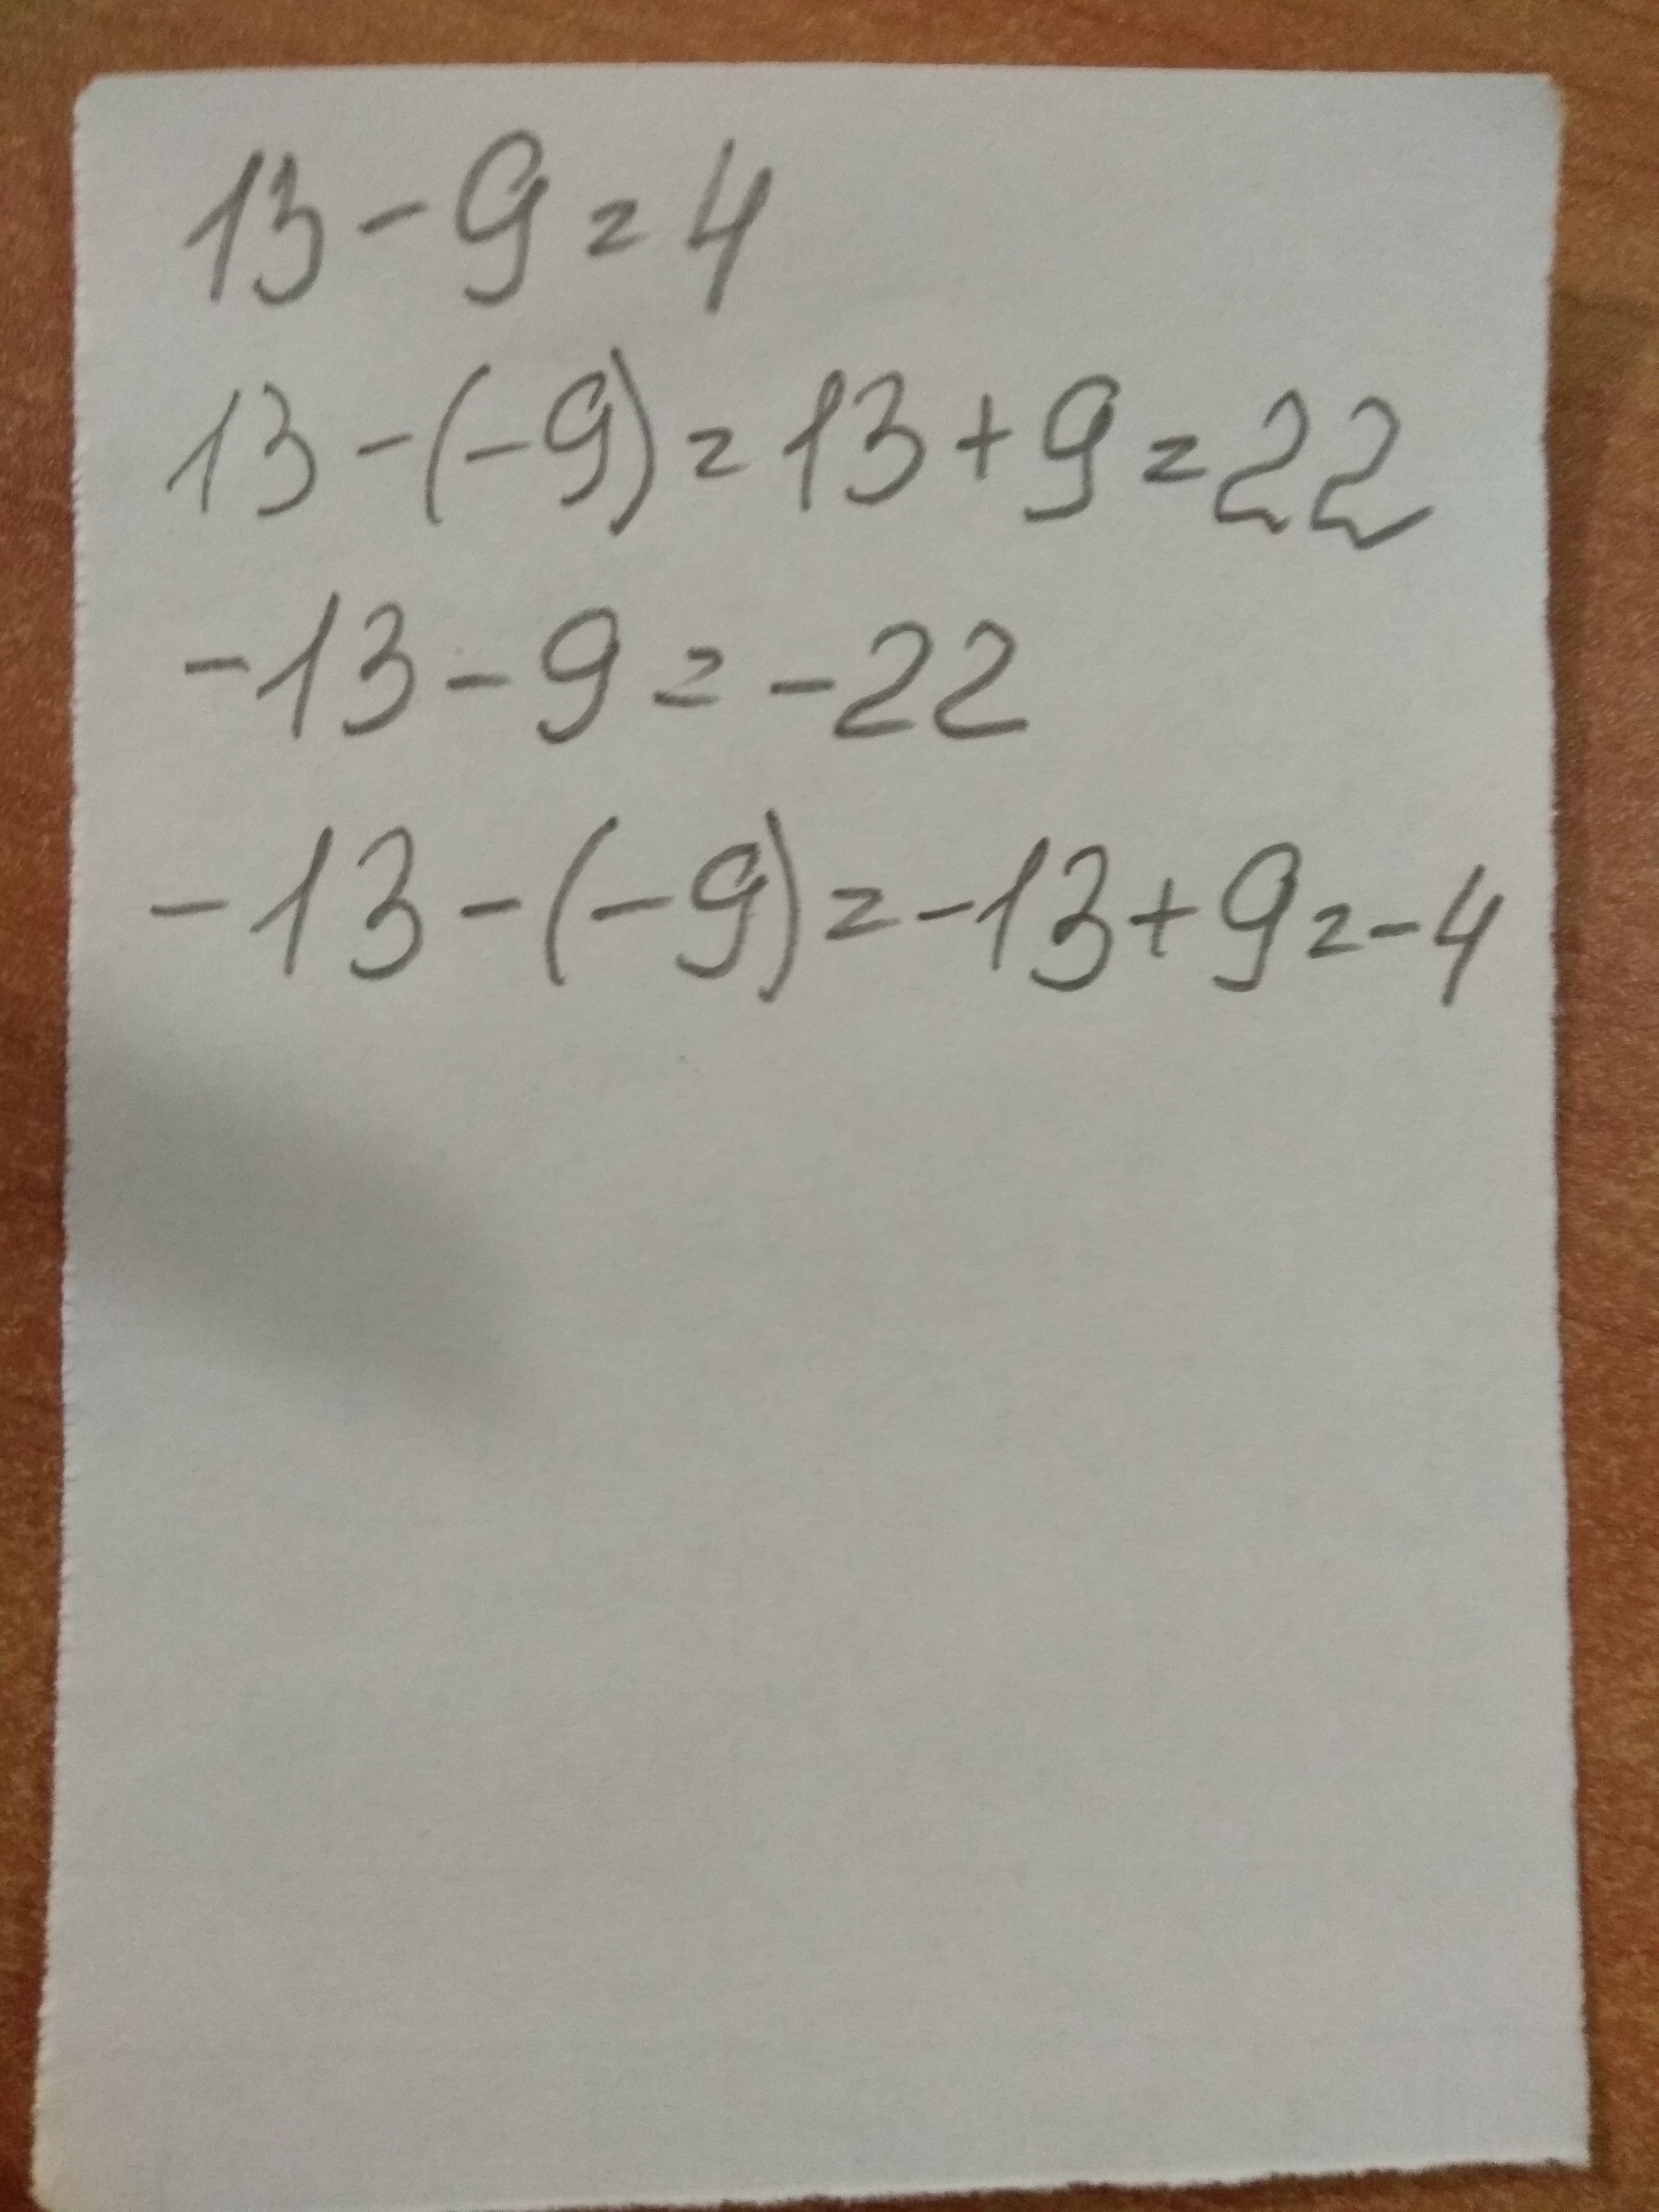 13 - 9 = 4
13 - (-9) = 13 + 9 = 22
-13 - 9 = -22
-13 - (-9) = -13 + 9 = -4